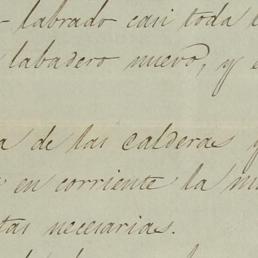 labrado casi toda
labadero nuevo, y
de las calderas y
en corriente la
tas necesarias.